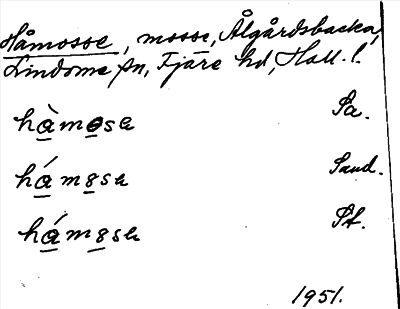 Håmosse, mosse, Ålgårdsbacka,
Lindome sn, Fjäre hd, Hall. l.
hàmosa Sa.
hám8sa Sand.
hám8sa St.
1951.